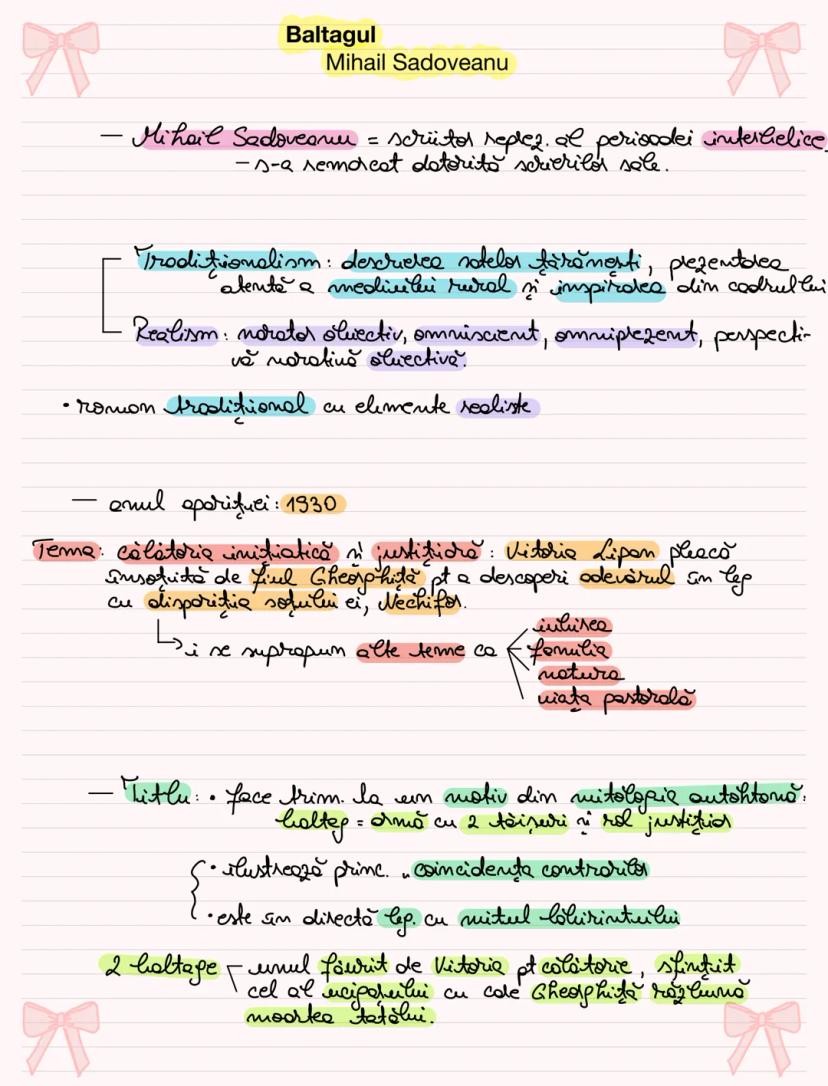 Baltagul
Mihail Sadoveanu
— Mihail Sadoveanu = scriitor reprez. al perioadei interbelice,
- s-a remarcat datorită scrierilor sale.
Tradiționalism: descrierea satelor țărănești, prezentarea
atentă a mediului rural și inspirarea din cadrului
Realism: narator obiectiv, omniscient, omniprezent, perspecti-
vă narativă obiectivă.
• roman tradițional cu elemente realiste
— anul apariției: 1930
Tema: călătoria inițiatică și justițiară: Vitoria Lipan pleacă
însoțită de fiul Gheorghiță pt a descoperi adevărul în leg
cu dispariția soțului ei, Nechifor.
↳ i se suprapun alte teme ca
iubirea
familia
natura
viața pastorală
— Titlu: • face trim. la un motiv din mitologia autohtonă:
baltag = armă cu 2 tăișuri și rol justițiar
• ilustrează princ. „coincidența contrariilor
• este în directă leg. cu mitul labirintului
2 baltage
unul făurit de Vitoria pt călătorie, sfințit
cel al ucigașului cu care Gheorghiță răzbună
moartea tatălui.